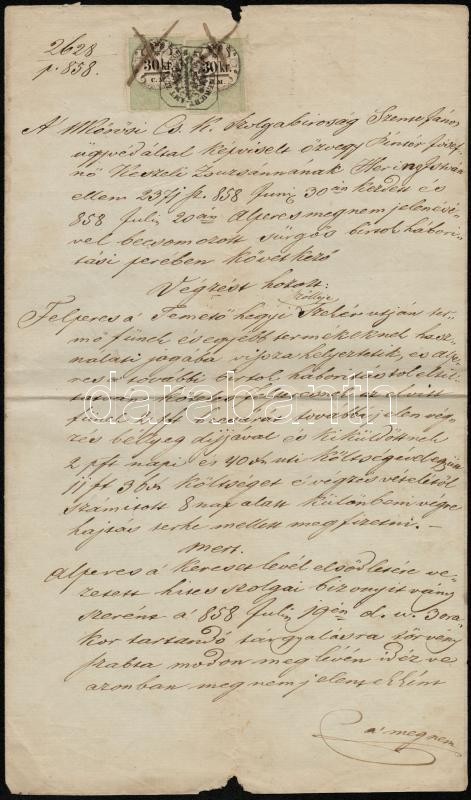 2628
p. 858.
30 kr. 30 kr.
C.M. C.M.
A Mórősi Cs. K. Szolgabiróság Szente János
ügyvéd által képviselt özvegy Pintér Józsefnő Keszeli Zsuzsánnának Hering István
ellen 2371 p. 858 Juni 30án kezdett és
858 Juli 20án Alperes meg nem jelenésével becsomozott sürgős birtok háboritási perében következő
Végzést hozott:
Felperes a Temető hegyi szőlleje Szelén utján termő fünek és egyébb terméknek használati jogába vissza helyeztetik, és alperes a további birtok háboritástól eltiltatván, köteles
füvnek
kr becsárát továbbá jelen végzés bélyeg dijjával és kiküldöttnek
2 pft napi és 40 xr uti költségével együtt
11 ft 36 xr költséget e végzés vételétől
számitott 8 nap alatt különbeni végrehajtás terhe mellett meg fizetni. —
mert.
Alperes a kereset levél elsődletére vezetett hites szolgai bizonyitvány
szerént a 858 Juli 19én d. u. 3 órakor tartandó tárgyalásra törvény
szabta módon meg lévén idézve
azonban meg nem jelent ekként
a meg nem
darabanth